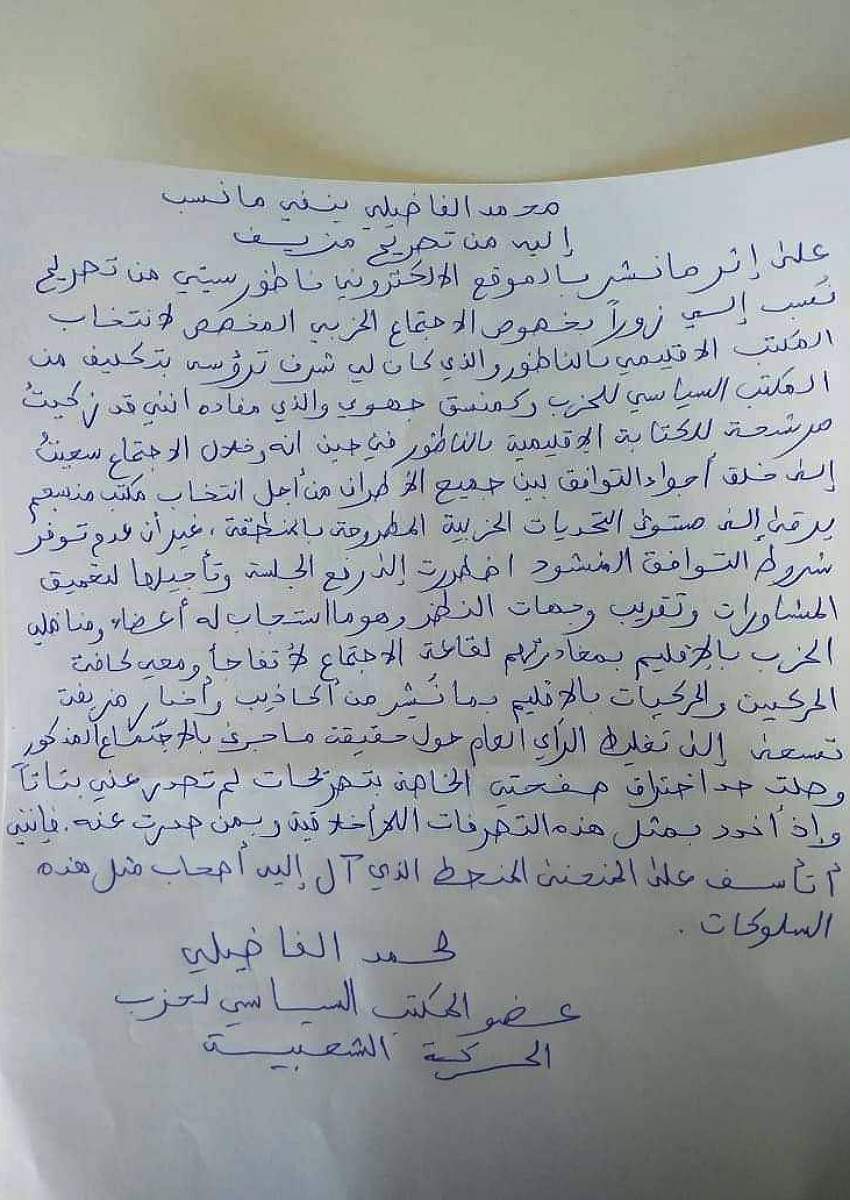 محمد الفاضيلي ينفي ما نسب
إليه من تصريح مزيف
على إثر ما نشر بالموقع الالكتروني ناظور سيتي من تصريح
نُسب إلي زوراً بخصوص الاجتماع الحزبي المخصص لانتخاب
المكتب الاقليمي بالناظور والذي كان لي شرف ترؤسه بتكليف من
المكتب السياسي للحزب وكمنسق جهوي والذي مفاده انني قد زكيتُ
مرشحة للكتابة الإقليمية بالناظور في حين انه وخلال الاجتماع سعيتُ
إلى خلق أجواء التوافق بين جميع الأطراف من أجل انتخاب مكتب منسجم
يرقى إلى مستوى التحديات الحزبية المطروحة بالمنطقة، غير أن عدم توفر
شروط التوافق المنشود اضطررت إلى رفع الجلسة وتأجيلها لتعميق
المشاورات وتقريب وجهات النظر وهو ما استجاب له أعضاء ومناضلي
الحزب بالإقليم بمغادرتهم لقاعة الاجتماع لأتفاجأ ومعي كافة
الحركيين والحركيات بالاقليم بما نُشر من أكاذيب وأخبار مزيفة
تسعى إلى تغليط الرأي العام حول حقيقة ما جرى بالاجتماع المذكور
وصلت حد اختراق صفحتي الخاصة بتصريحات لم تصدر عني بتاتاً
وإذ أندد بمثل هذه التصرفات اللاأخلاقية وبمن صدرت عنه. فإنني
أتأسف على المنحى المنحط الذي آل إليه أصحاب مثل هذه
السلوكات.
محمد الفاضيلي
عضو المكتب السياسي لحزب
الحركة الشعبية